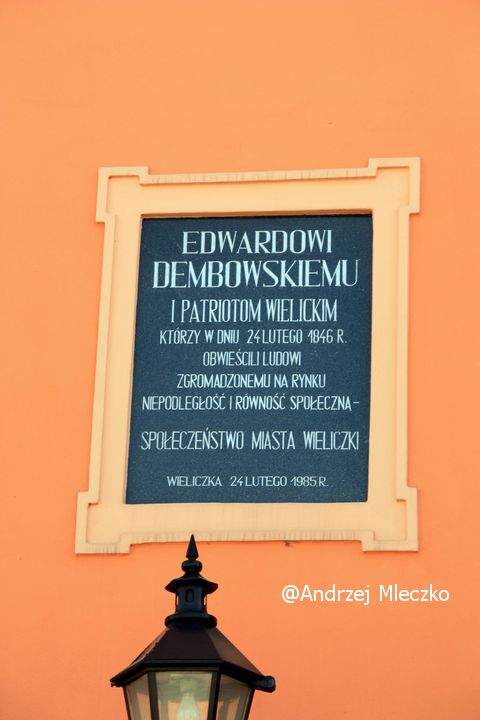 EDWARDOWI
DEMBOWSKIEMU
I PATRIOTOM WIELICKIM
KTÓRZY W DNIU 24 LUTEGO 1846 R.
OBWIEŚCILI LUDOWI
ZGROMADZONEMU NA RYNKU
NIEPODLEGŁOŚĆ I RÓWNOŚĆ SPOŁECZNA-
SPOŁECZEŃSTWO MIASTA WIELICZKI
WIELICZKA 24 LUTEGO 1985 R.
@Andrzej Mleczko